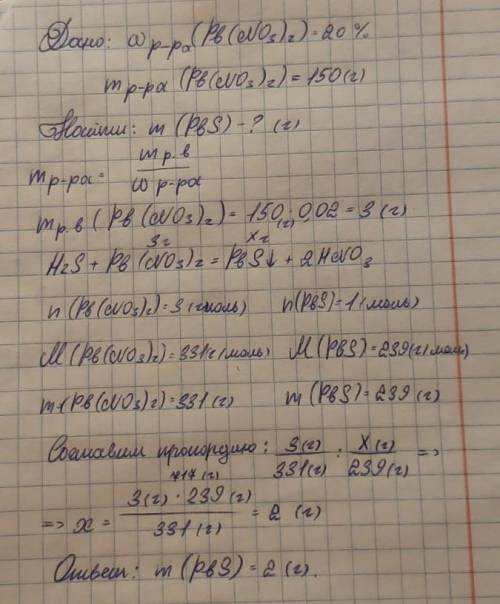 Дано: ω р-ра (Pb(NO₃)₂) = 20 %
m р-ра (Pb(NO₃)₂) = 150 (г)
Найти: m (PbS) - ? (г)
m р-ра = m р.в / ω р-ра
m р.в (Pb(NO₃)₂) = 150 (г) · 0,02 = 3 (г)
3 г x г
H₂S + Pb(NO₃)₂ = PbS↓ + 2HNO₃
n (Pb(NO₃)₂) = 3 (моль) n (PbS) = 1 (моль)
M (Pb(NO₃)₂) = 331 (г/моль) M (PbS) = 239 (г/моль)
m (Pb(NO₃)₂) = 331 (г) m (PbS) = 239 (г)
Составим пропорцию: 3(г) / 331(г) : x(г) / 239(г) =>
717 (г)
=> x = 3(г) · 239(г) / 331(г) = 2 (г)
Ответ: m (PbS) = 2 (г).